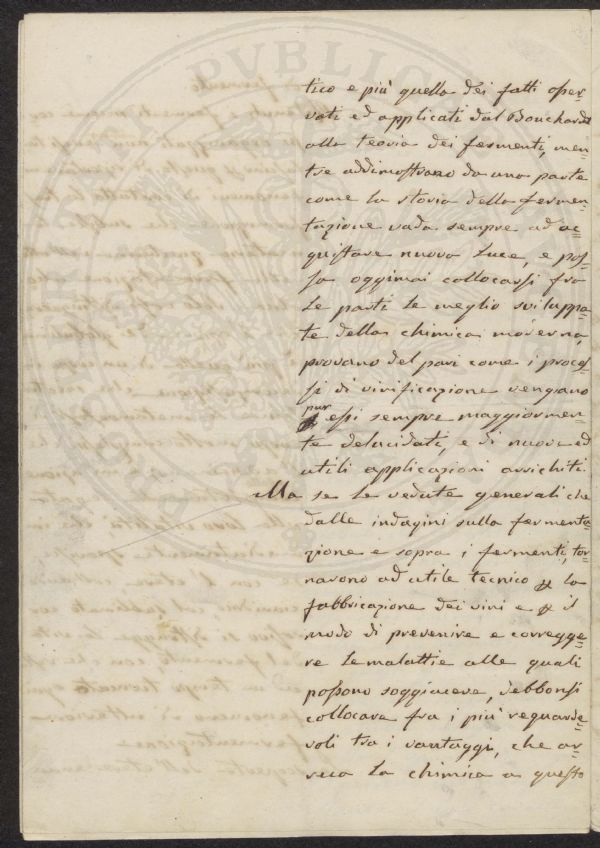 tico e più quella dei fatti osser-
vati ed applicati dal Bouchardt
alla teoria dei fermenti, men-
tre addimostrano da una parte
come la storia della fermen-
tazione vada sempre ad ac-
quistare nuova luce, e pos-
sa oggimai collocarsi fra
le parti le meglio sviluppa-
te della chimica moderna,
provano del pari come i proces-
si di vinificazione vengano
pur
essi sempre maggiormen-
te delucidati, e di nuove ed
utili applicazioni arrichiti.
Ma se le vedute generali che
dalle indagini sulla fermenta-
zione e sopra i fermenti, tor-
navono ad utile tecnico p la
fabbricazione dei vini e p il
modo di prevenire e corregge-
re le malattie alle quali
possono soggiacere, debbonsi
collocare fra i più reguarde-
voli tra i vantaggi, che ar-
reca la chimica a questo